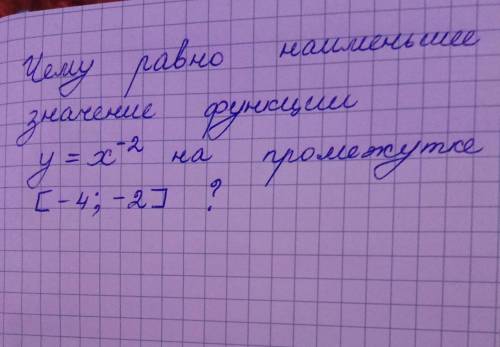 Чему равно наименьшее
значение функции
y = x⁻² на промежутке
[-4; -2] ?